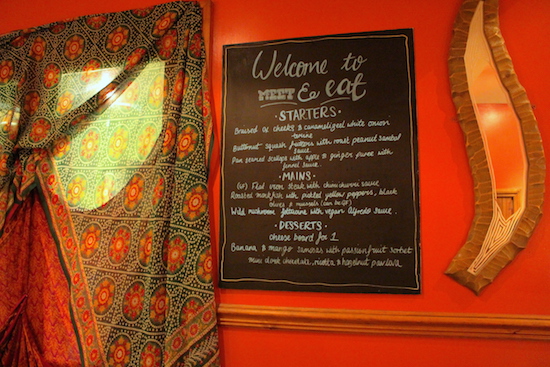 Welcome to
MEET & eat
· STARTERS ·
Braised ox cheeks & caramelized white onion
terrine
Butternut squash fritters with roast peanut sambal
sauce
Pan seared scallops with apple & ginger puree with
fennel sauce
· MAINS ·
(GF) Flat iron steak with chimichurri sauce
Roasted monkfish with pickled yellow peppers, black
olives & mussels (can be GF)
Wild mushroom fettuccine with vegan Alfredo sauce.
· DESSERTS ·
Cheese board for 1
Banana & mango samosas with passionfruit sorbet
Mini dark chocolate, ricotta & hazelnut pavlova